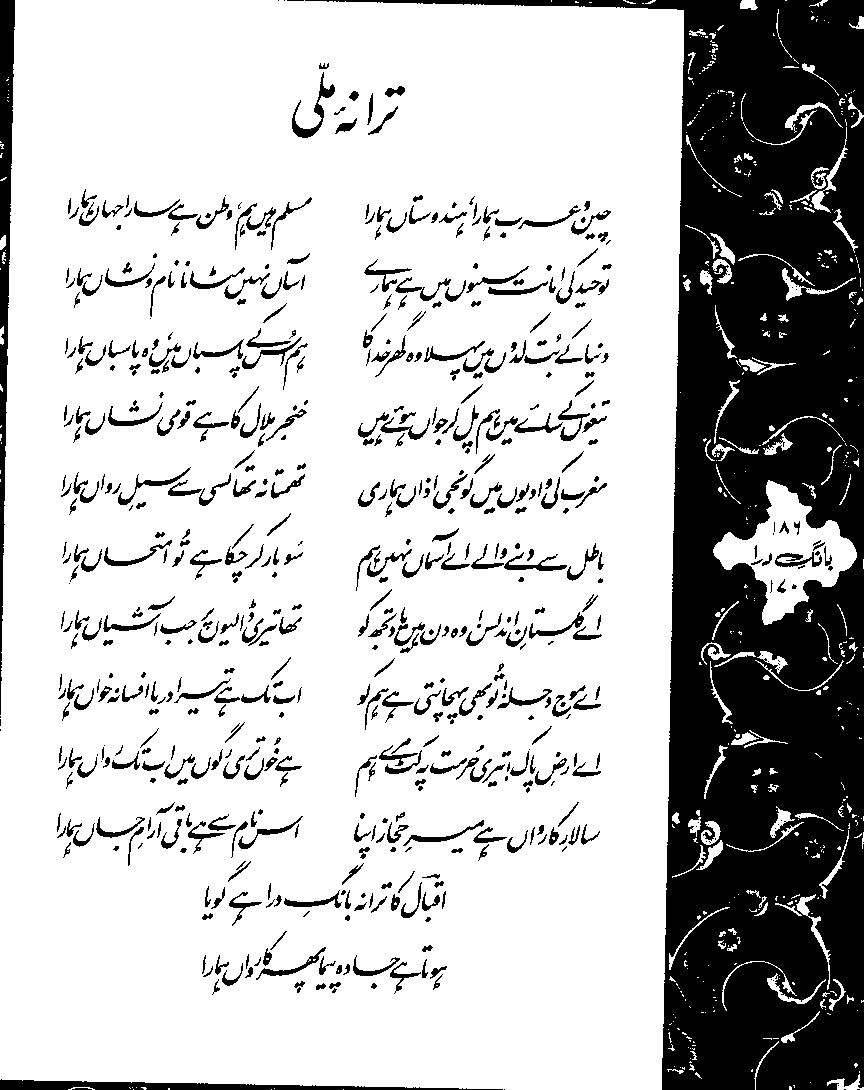 ترانۂ ملّی
چین و عرب ہمارا، ہندوستاں ہمارا مسلم ہیں ہم، وطن ہے سارا جہاں ہمارا
توحید کی امانت سینوں میں ہے ہمارے آساں نہیں مٹانا نام و نشاں ہمارا
دنیا کے بُت کدوں میں پہلا وہ گھر خدا کا ہم اُس کے پاسباں ہیں، وہ پاسباں ہمارا
تیغوں کے سائے میں ہم پل کر جواں ہوئے ہیں خنجر ہلال کا ہے قومی نشاں ہمارا
مغرب کی وادیوں میں گونجی اذاں ہماری تھمتا نہ تھا کسی سے سیلِ رواں ہمارا
باطل سے دبنے والے اے آسماں نہیں ہم سَو بار کر چکا ہے تُو امتحاں ہمارا
اے گلِستانِ اندلس! وہ دن ہیں یاد تجھ کو تھا تیری ڈالیوں پر جب آشیاں ہمارا
اے موجِ دجلہ! تُو بھی پہچانتی ہے ہم کو اب تک ہے تیرا دریا افسانہ خواں ہمارا
اے ارضِ پاک! تیری حُرمت پہ کٹ مرے ہم ہے خُوں تری رگوں میں اب تک رواں ہمارا
سالارِ کارواں ہے میرِ حجازؐ اپنا اس نام سے ہے باقی آرامِ جاں ہمارا
اقبالؔ کا ترانہ بانگِ درا ہے گویا
ہوتا ہے جادہ پیما پھر کارواں ہمارا
۱۸۶
بانگِ درا
۱۷۰